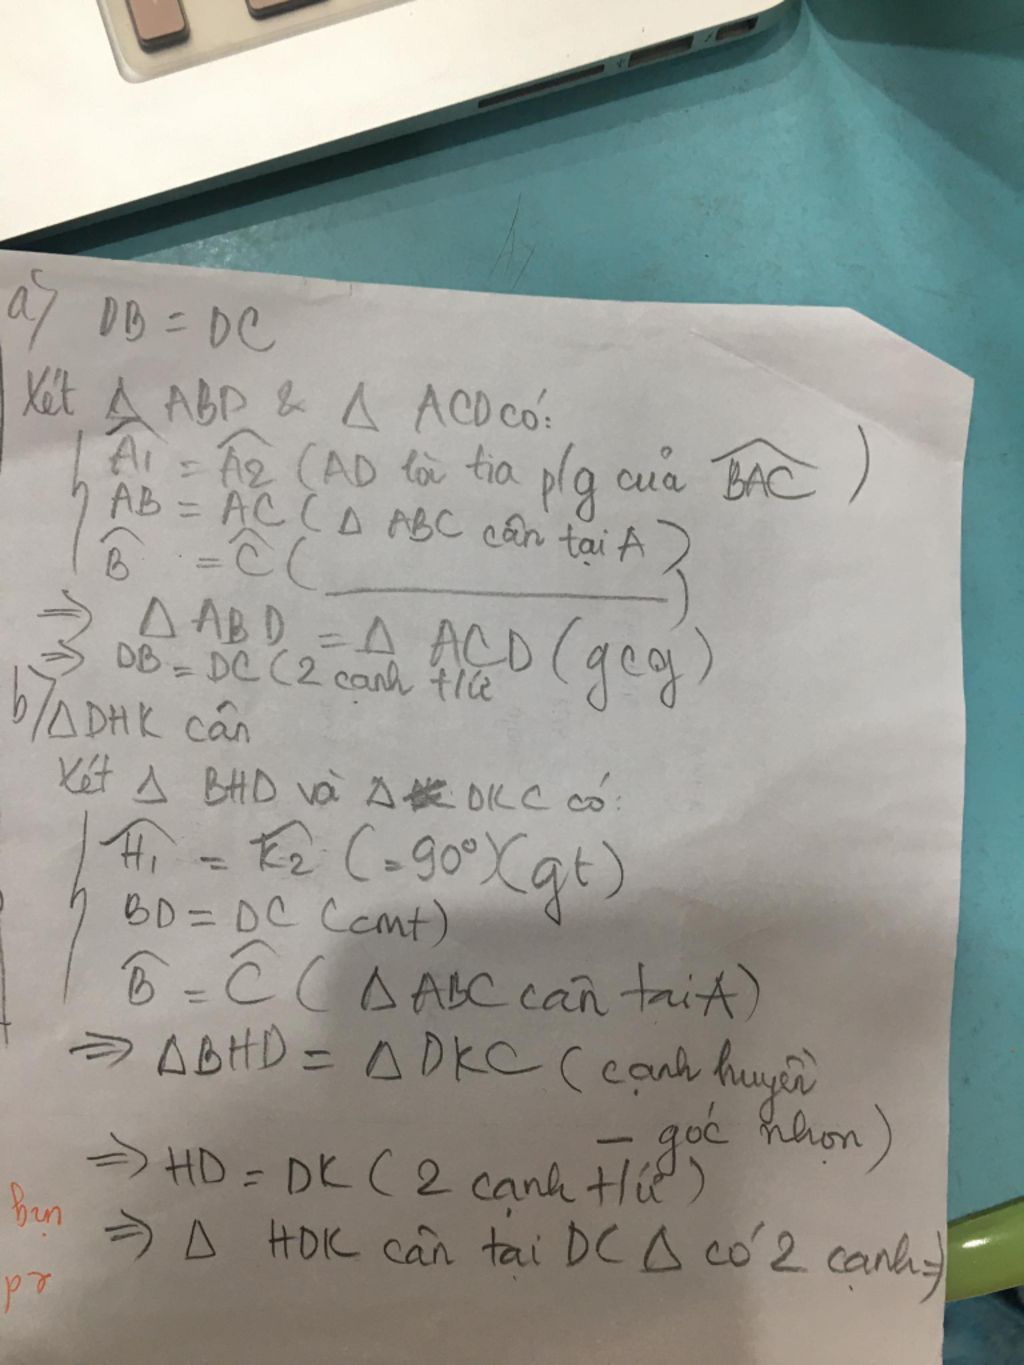 a) DB = DC
Xét Δ ABD & Δ ACD có:
Â1 = Â2 (AD là tia p/g của BAC)
AB = AC (Δ ABC cân tại A)
B̂ = Ĉ ( ________ )
=> Δ ABD = Δ ACD (gcg)
=> DB = DC (2 cạnh t/ứ
b) ΔDHK cân
Xét Δ BHD và Δ DKC có:
Ĥ1 = K̂2 (=90°)(gt)
BD = DC (cmt)
B̂ = Ĉ (ΔABC cân tai A)
=> ΔBHD = ΔDKC (cạnh huyền
- góc nhọn)
=> HD = DK (2 cạnh t/ứ)
=> Δ HDK cân tại D( Δ có 2 cạnh =)